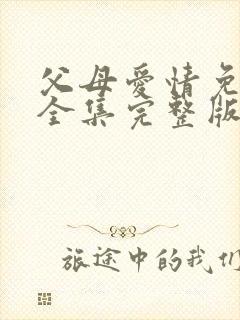 父母爱情免
全集完整版
旅途中的我们